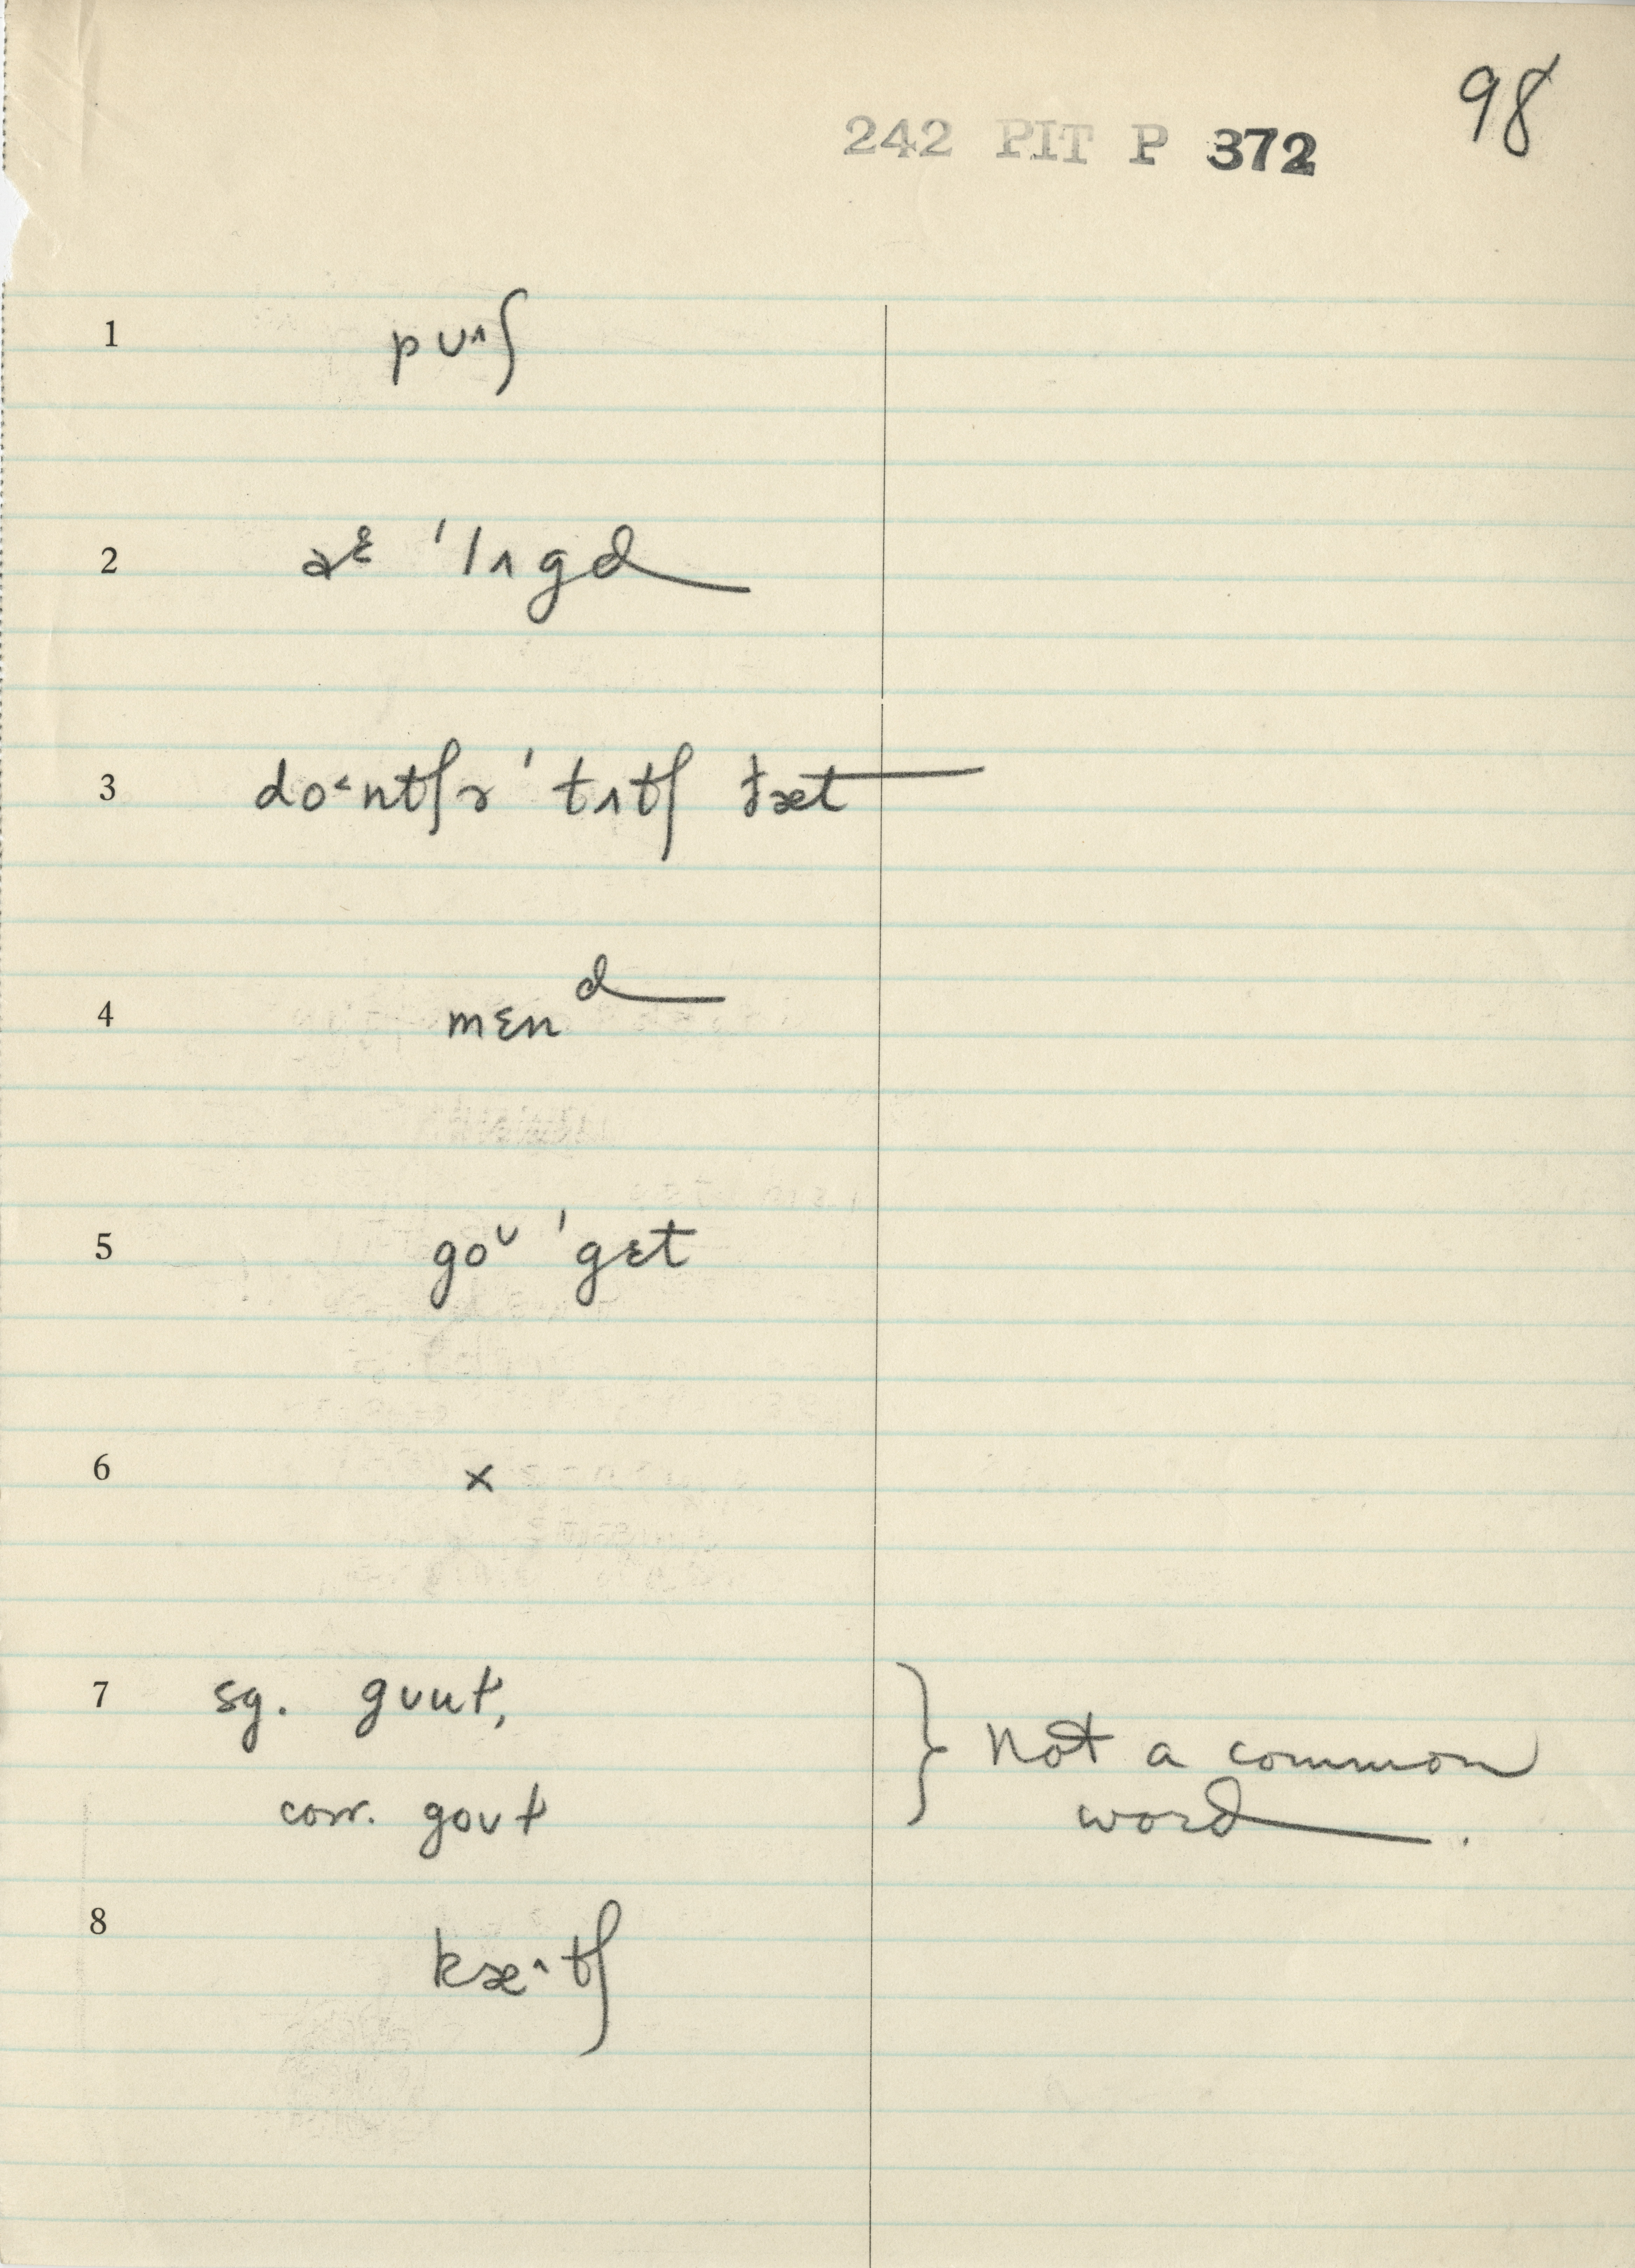 98
242 PIT P 372
1 pʊ˄ʃ
2 əᵋ ˈlʌgd
3 do˂ntʃɚ ˈtʌtʃ ðæt
4 mɛnᵈ
5 goᴜ ˈgɛt
6 x
7 sg. gʊut,
} Not a common
corr. goʊt
word.
8 kæ˄tʃ